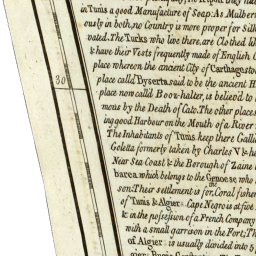 in Tunis a good Manufacture of Soap. As Mulber
ously in both, no Country is more proper for Silk
vated. The Turks who live there, are Clothed lik
& have their Vests frequently made of English
place whereon the ancient City of Carthage stoo
30 place calld Dyserta said to be the ancient H
place now calld Booz-halter, is believ'd to
mous by the Death of Cato. The other places
ing good Harbour on the Mouth of a River
The Inhabitants of Tunis keep there Gallie
Goletta formerly taken by Charles V & h
Near Sea Coast & the Borough of Zaine
barca which belongs to the Genoese who
son: Their settlement is for the Coral fisher
of Tunis & Algier: Cape Negro is at five
& in the possession of a French Company
with a small garrison in the Fort; Th
of Algier is usually divided into 5